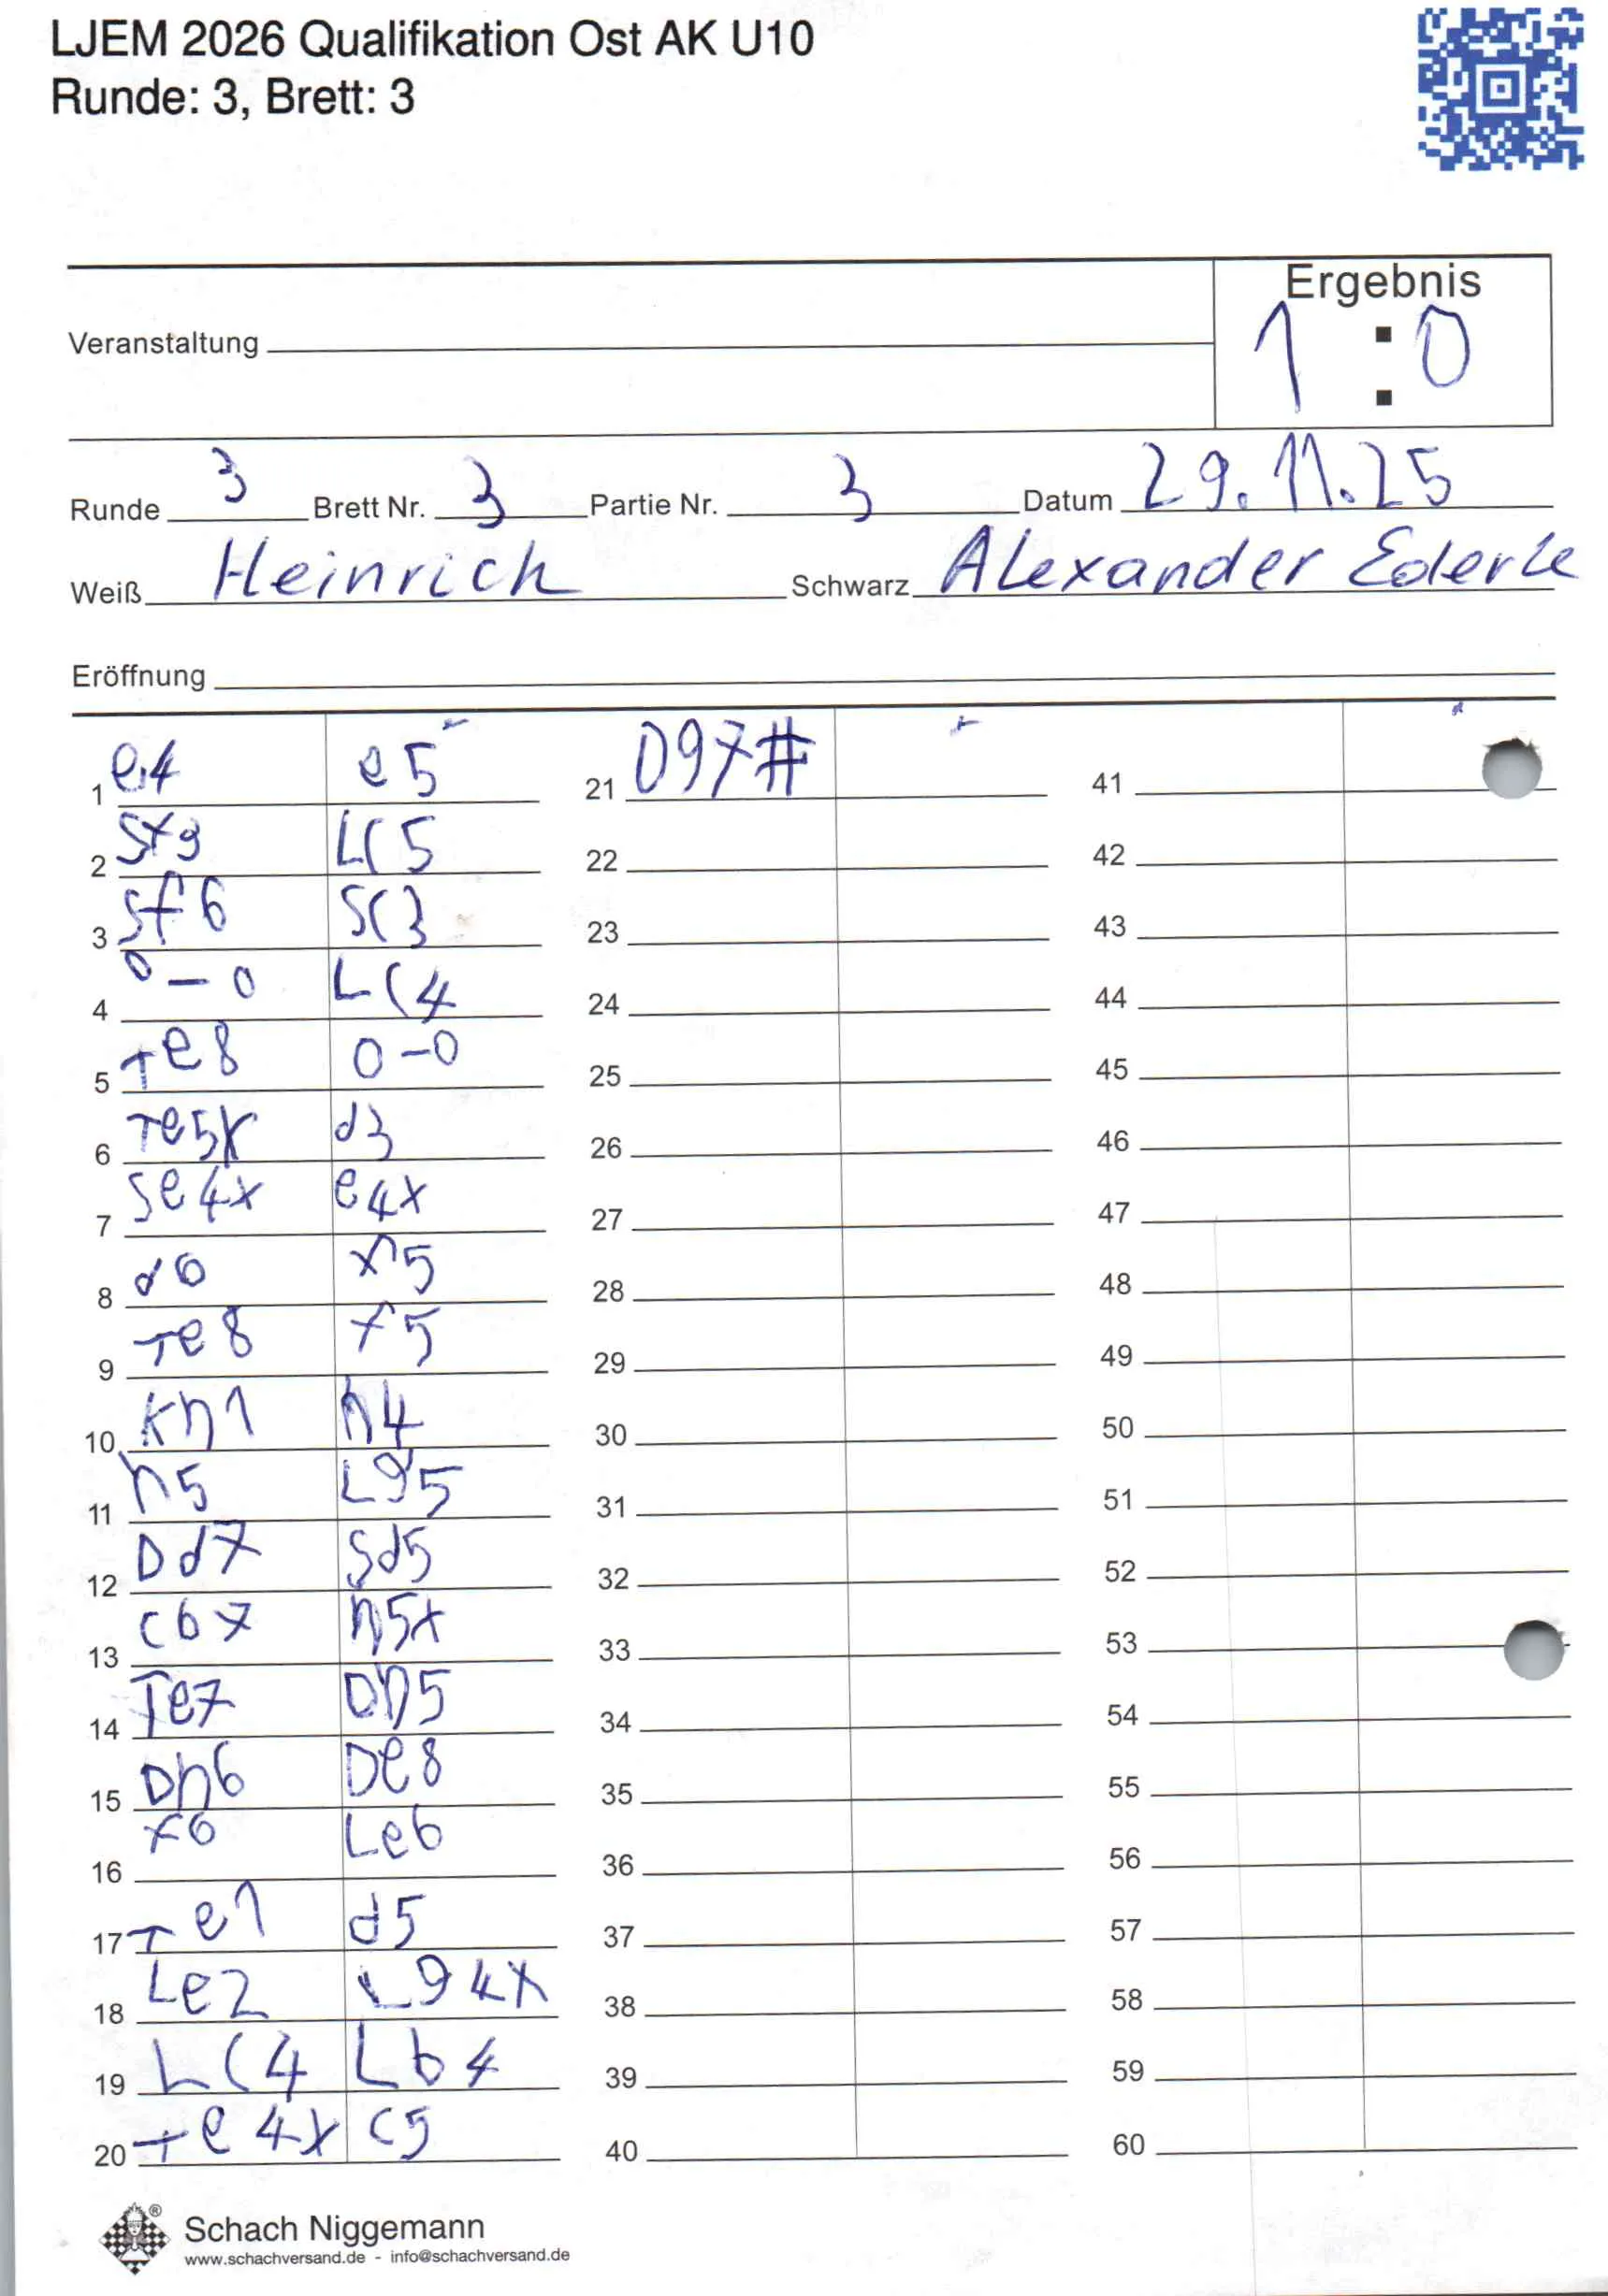 LJEM 2026 Qualifikation Ost AK U10
Runde: 3, Brett: 3
Ergebnis
1 : 0
Veranstaltung
Runde 3 Brett Nr. 3 Partie Nr. 3 Datum 29.11.25
Weiß Heinrich Schwarz Alexander Ederle
Eröffnung
1 e4 e5
2 Sf3 LC5
3 Sf6 SC3
4 0-0 LC4
5 Te8 0-0
6 Te5x d3
7 Se4x e4x
8 d6 f5
9 Te8 f5
10 Kh1 h4
11 h5 Lg5
12 Dd7 Sd5
13 c6 h5x
14 Te7 Dh5
15 Dh6 De8
16 f6 Le6
17 Te1 d5
18 Le2 Lg4x
19 LC4 Lb4
20 Te4x c5
21 Dg7#
22
23
24
25
26
27
28
29
30
31
32
33
34
35
36
37
38
39
40
41
42
43
44
45
46
47
48
49
50
51
52
53
54
55
56
57
58
59
60
Schach Niggemann
www.schachversand.de - info@schachversand.de